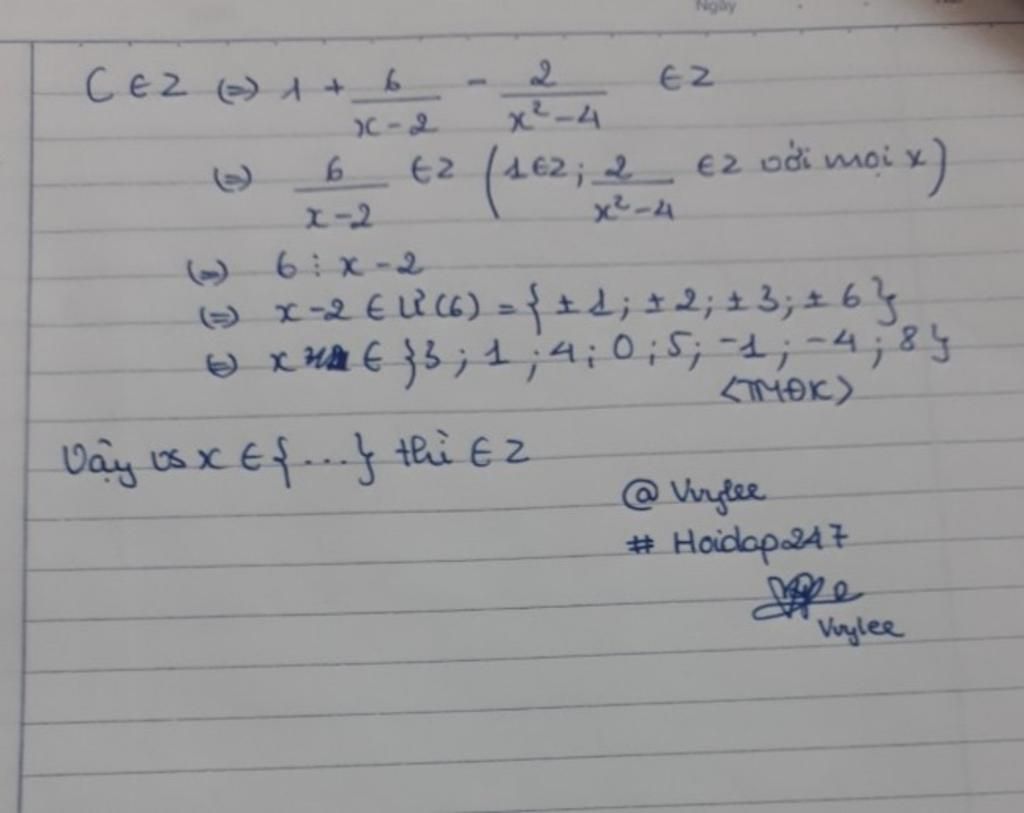 Ngày
C ∈ Z (=) 1 + 6/(x-2) - 2/(x²-4) ∈ Z
(=) 6/(x-2) ∈ Z (1 ∈ Z; 2/(x²-4) ∈ Z với mọi x)
(=) 6 ⋮ x-2
(=) x-2 ∈ Ư(6) = {±1; ±2; ±3; ±6}
(=) x ∈ }3; 1; 4; 0; 5; -1; -4; 8}
<TMĐK>
Vậy vs x ∈ {...} thì ∈ Z
@ Vvylee
# Hoidap247
Vvylee